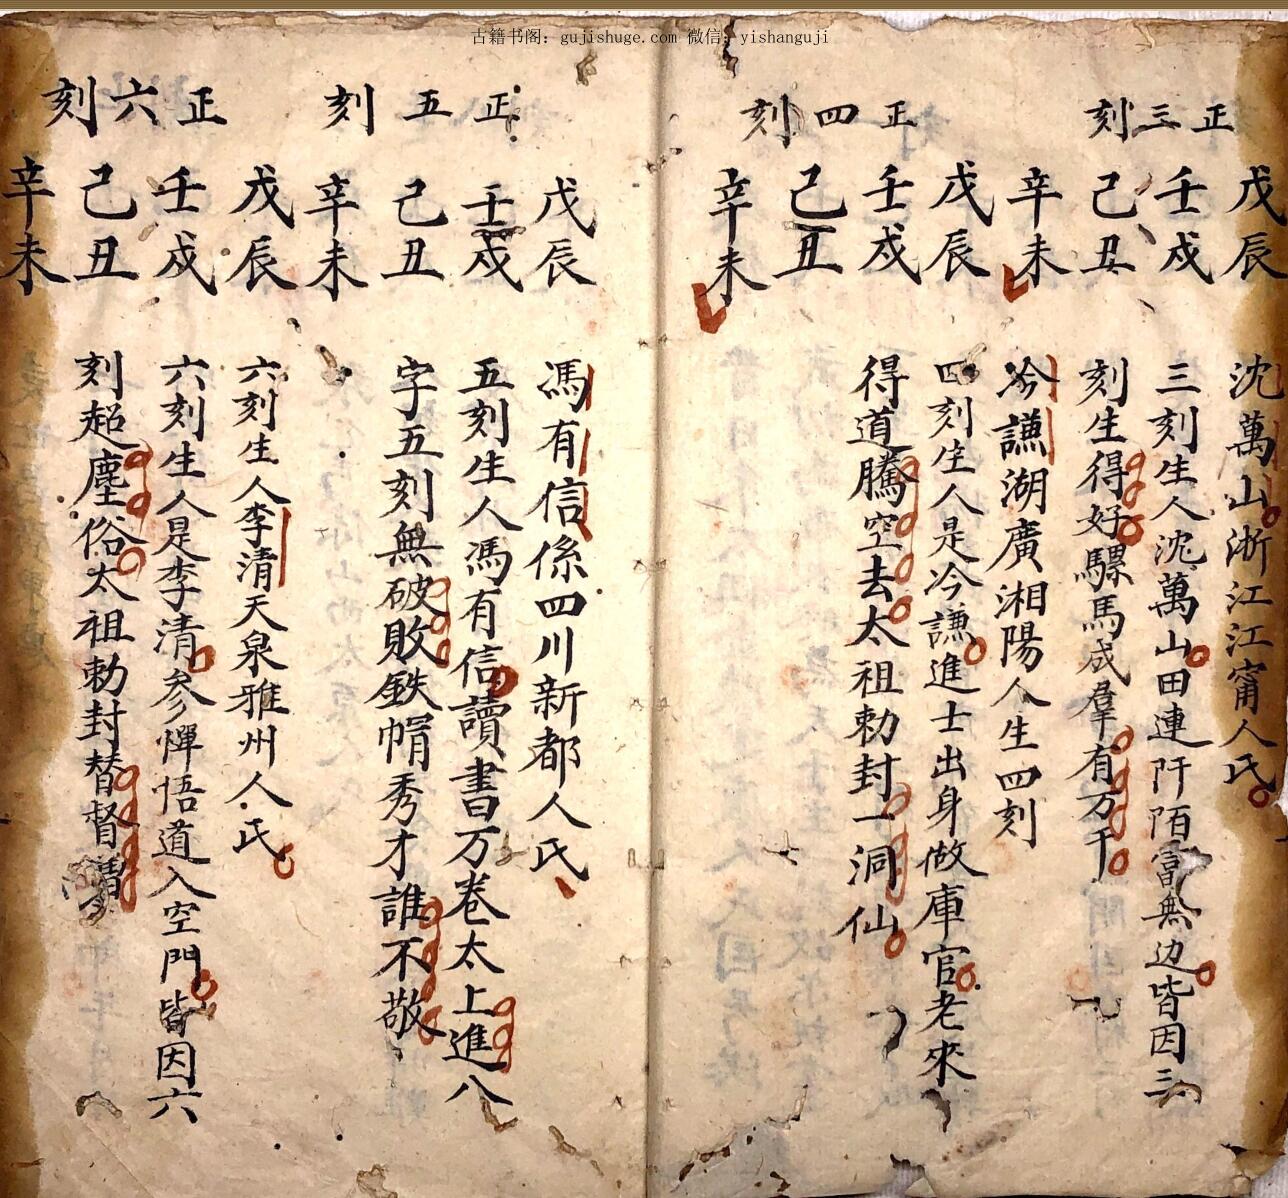 古籍书阁：gujishuge.com 微信：yishanguji
正三刻
戊辰
壬戌
己丑
辛未
沈萬山浙江江甯人氏
三刻生人沈萬山田連阡陌富無边皆因三
刻生得好騾馬成羣有万千
正四刻
戊辰
壬戌
己丑
辛未
冷謙湖廣湘陽人生四刻
四刻生人是冷謙進士出身做庫官老來
得道騰空去太祖勅封一洞仙
正五刻
戊辰
壬戌
己丑
辛未
馮有信係四川新都人氏
五刻生人馮有信讀書万卷太上進八
字五刻無破敗鉄帽秀才誰不敬
正六刻
戊辰
壬戌
己丑
辛未
六刻生人李清天泉雅州人氏
六刻生人是李清參憚悟道入空門皆因六
刻超塵俗太祖勅封替督